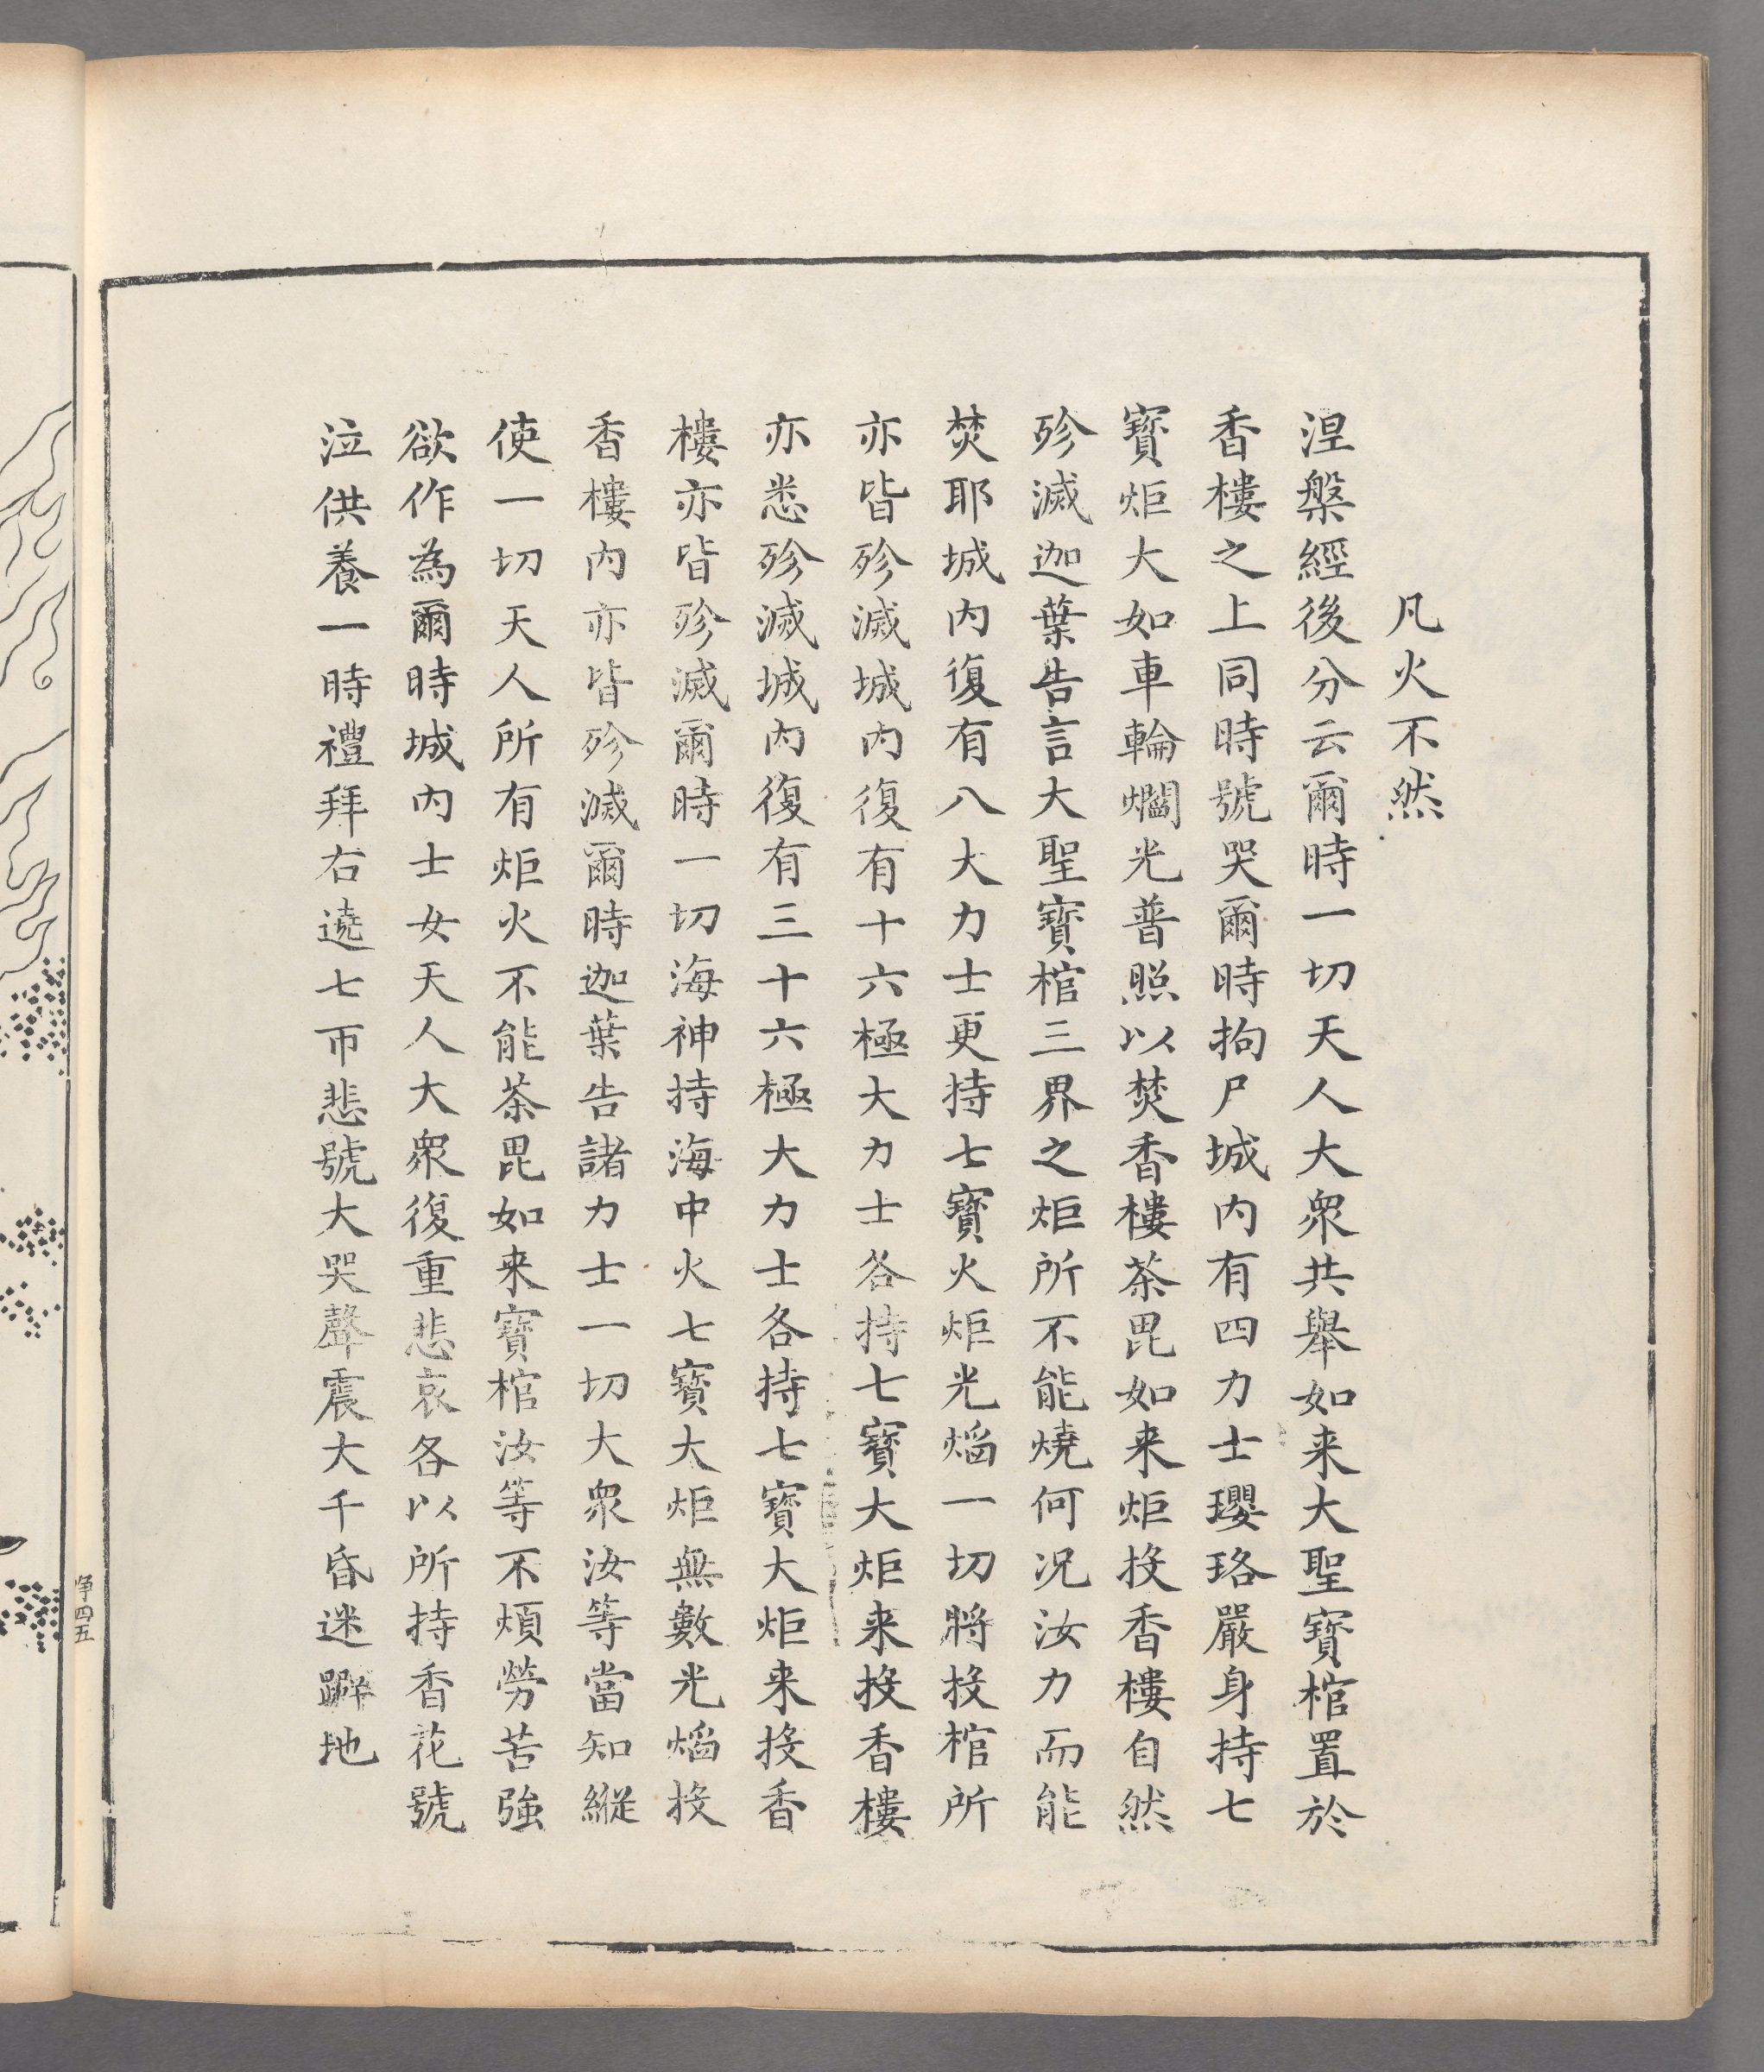 凡火不然
涅槃經後分云爾時一切天人大衆共舉如来大聖寶棺置於
香樓之上同時號哭爾時拘尸城内有四力士瓔珞嚴身持七
寶炬大如車輪爓光普照以焚香樓茶毘如来炬投香樓自然
殄滅迦葉告言大聖寶棺三界之炬所不能燒何况汝力而能
焚耶城内復有八大力士更持七寶火炬光焰一切將投棺所
亦皆殄滅城内復有十六極大力士各持七寶大炬来投香樓
亦悉殄滅城内復有三十六極大力士各持七寶大炬来投香
樓亦皆殄滅爾時一切海神持海中火七寶大炬無數光焰投
香樓内亦皆殄滅爾時迦葉告諸力士一切大衆汝等當知縱
使一切天人所有炬火不能茶毘如来寶棺汝等不煩勞苦強
欲作為爾時城内士女天人大衆復重悲哀各以所持香花號
泣供養一時禮拜右遶七帀悲號大哭聲震大千昏迷躃地
四五